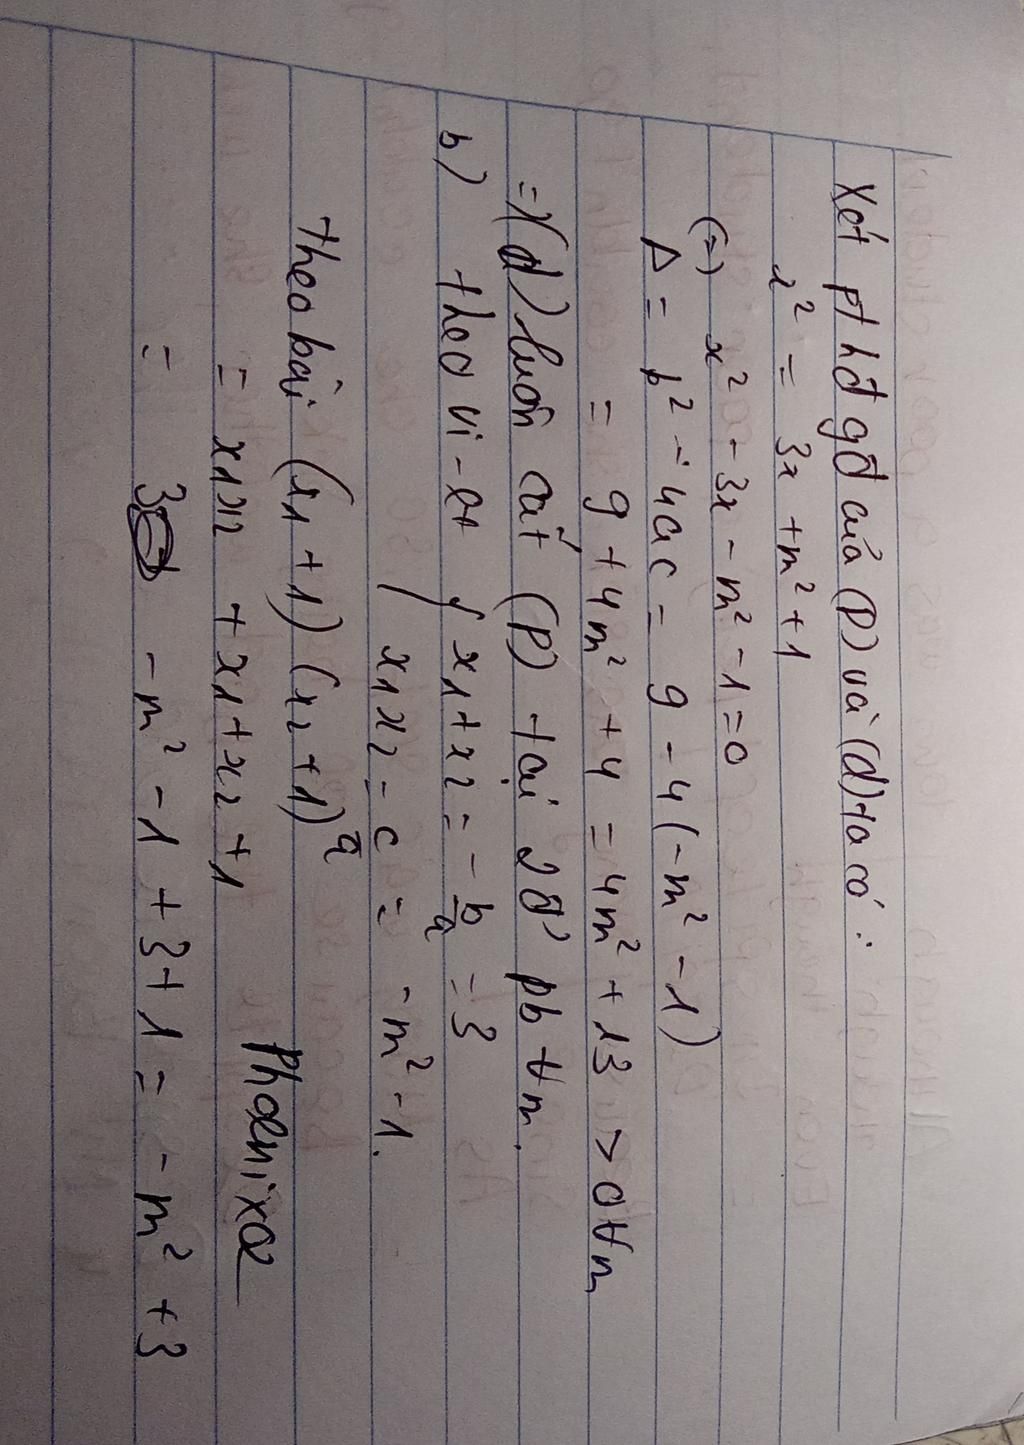 Xét pt hđ gđ của (P) và (d) ta có :
x² = 3x + m² + 1
(=) x² - 3x - m² - 1 = 0
Δ = b² - 4ac = 9 - 4(-m² - 1)
= 9 + 4m² + 4 = 4m² + 13 > 0 ∀m
=) (d) luôn cắt (P) tại 2 đ' pb ∀m.
b) theo vi-et { x1 + x2 = -b/a = 3
x1x2 = c/a = -m² - 1.
theo bài (x1 + 1) (x2 + 1)
= x1x2 + x1 + x2 + 1
Phoenixae
= -m² - 1 + 3 + 1 = -m² + 3